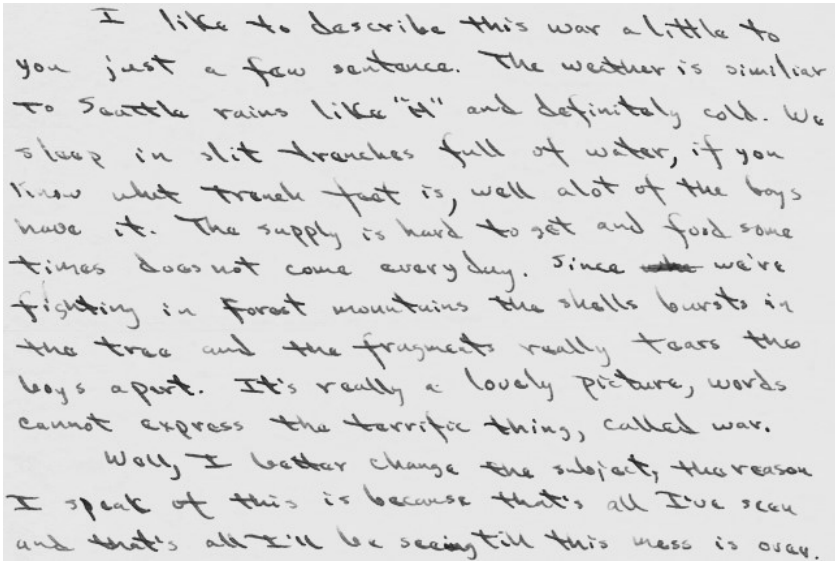 I like to describe this war a little to
you just a few sentence. The weather is similiar
to Seattle rains like "H" and definitely cold. We
sleep in slit trenches full of water, if you
know what trench feet is, well alot of the boys
have it. The supply is hard to get and food some
times does not come every day. Since we're
fighting in forest mountains the shells bursts in
the tree and the fragments really tears the
boys apart. It's really a lovely picture, words
cannot express the terrific thing, called war.
Well, I better change the subject, the reason
I speak of this is because that's all I've seen
and that's all I'll be seeing till this mess is over.